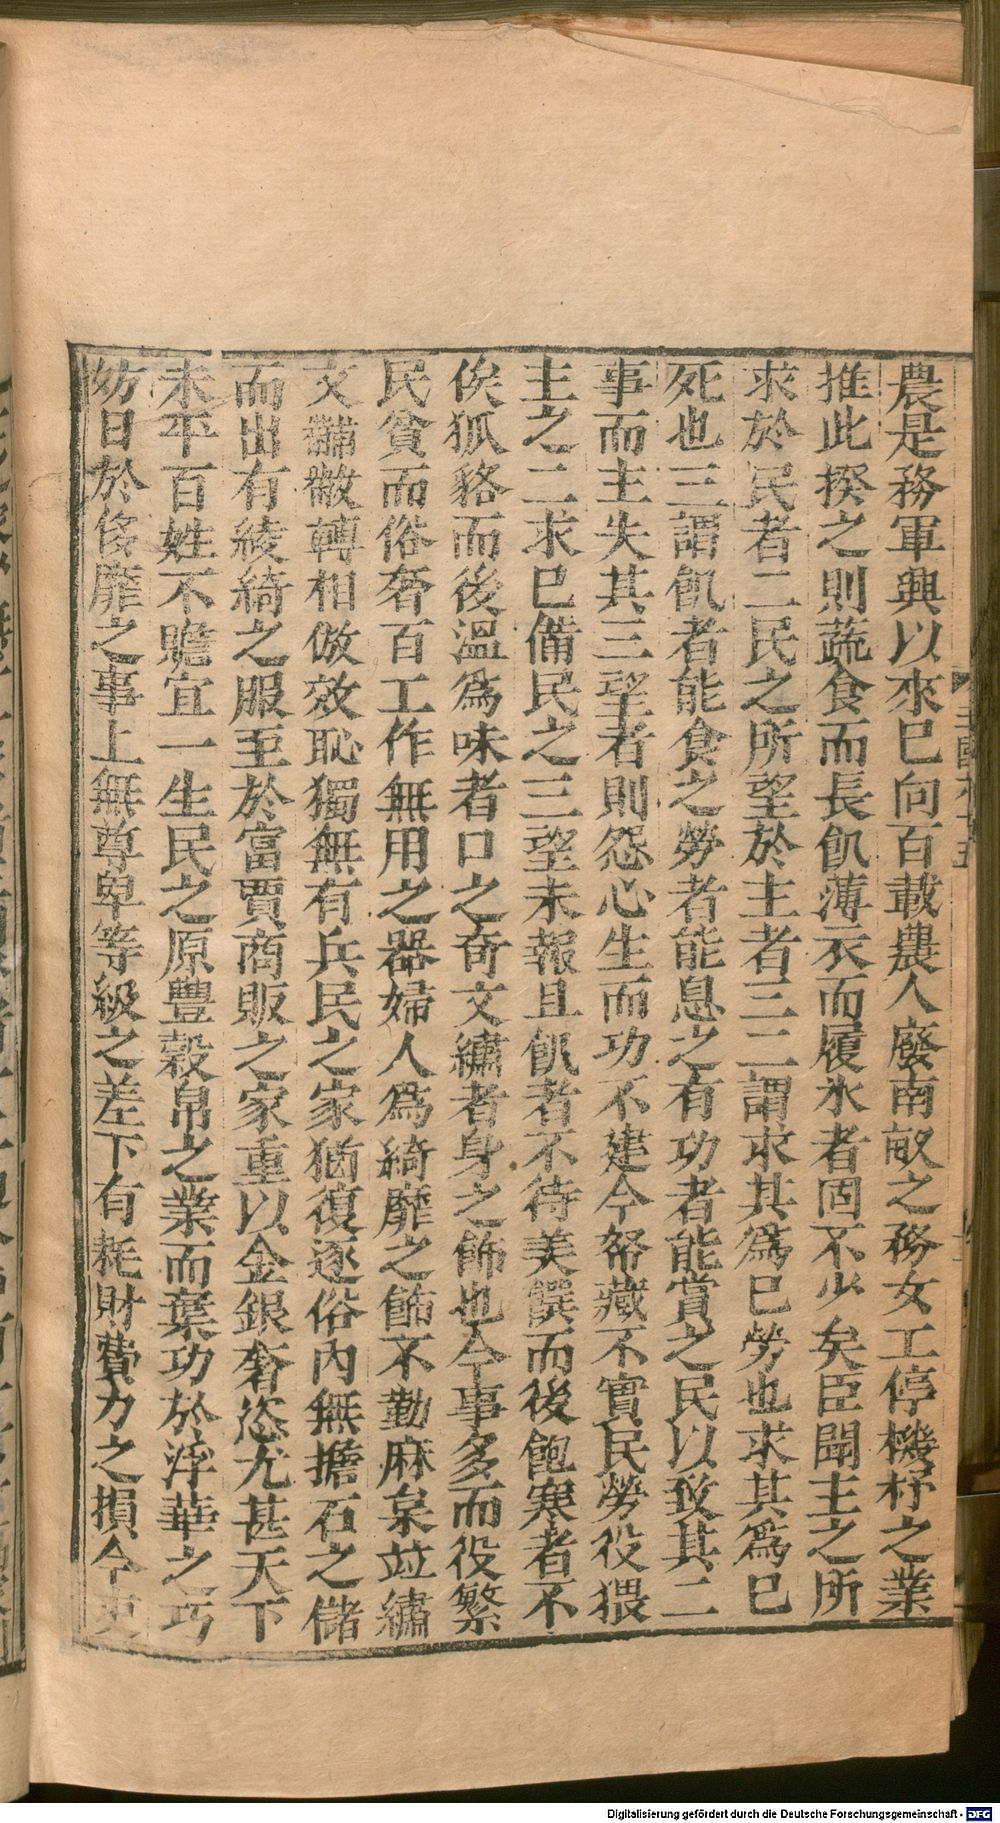 農是務軍興以來已向百載農人廢南畝之務女工停機杼之業
推此揆之則蔬食而長飢薄衣而履氷者固不少矣臣聞主之所
求於民者二民之所望於主者三二謂求其爲已勞也求其爲已
死也三謂飢者能食之勞者能息之有功者能賞之民以致其二
事而主失其三望者則怨心生而功不建今帑藏不實民勞役猥
主之二求已備民之三望未報且飢者不待美饌而後飽寒者不
俟狐貉而後溫爲味者口之奇文繡者身之飾也今事多而役繁
民貧而俗奢百工作無用之器婦人爲綺靡之飾不勤麻枲竝繡
文黼黻轉相倣效恥獨無有兵民之家猶復逐俗内無擔石之儲
而出有綾綺之服至於富賈商販之家重以金銀奢恣尤甚天下
未平百姓不贍宜一生民之原豐穀帛之業而棄功於浮華之巧
妨日於侈靡之事上無尊卑等級之差下有耗財費力之損今吏
Digitalisierung gefördert durch die Deutsche Forschungsgemeinschaft - DFG